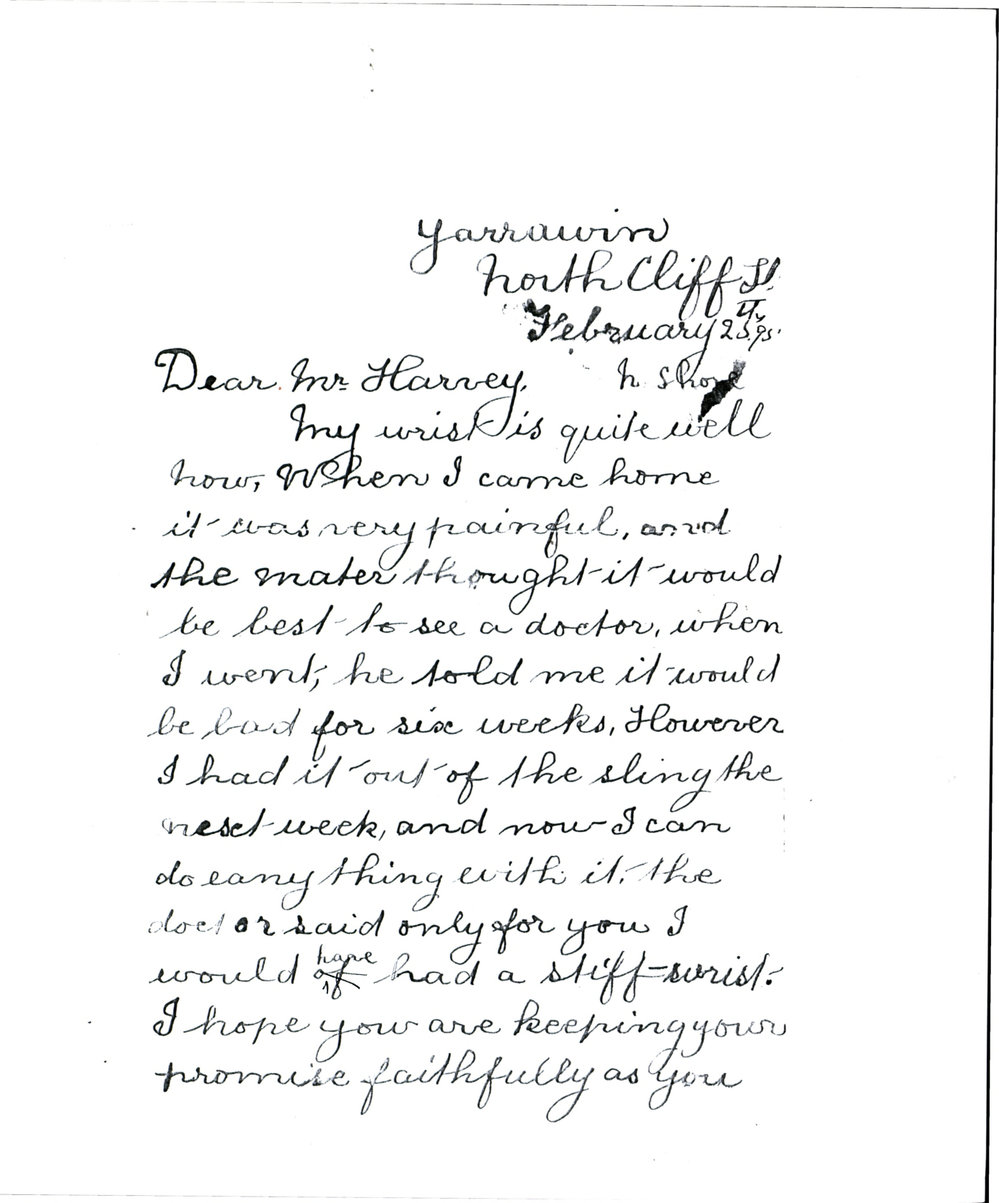 Yarrawin
North Cliff St.
February 25th 95.
Dear Mr Harvey.
N. Shore
My wrist is quite well
now, When I came home
it was very painful, and
the mater thought it would
be best to see a doctor, when
I went, he told me it would
be bad for six weeks, However
I had it out of the sling the
next week, and now I can
do eany thing with it. the
doctor said only for you I
would of have had a stiff-wrist.
I hope you are keeping your
promise faithfully as you